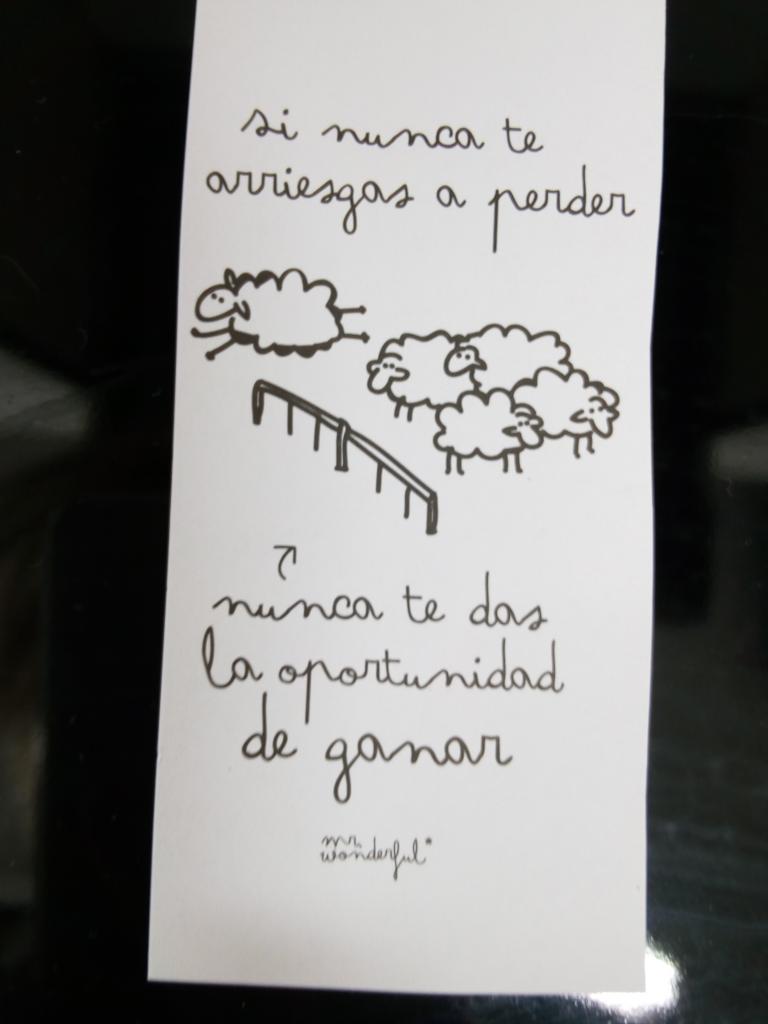 si nunca te
arriesgas a perder
nunca te das
la oportunidad
de ganar
mr.
wonderful*